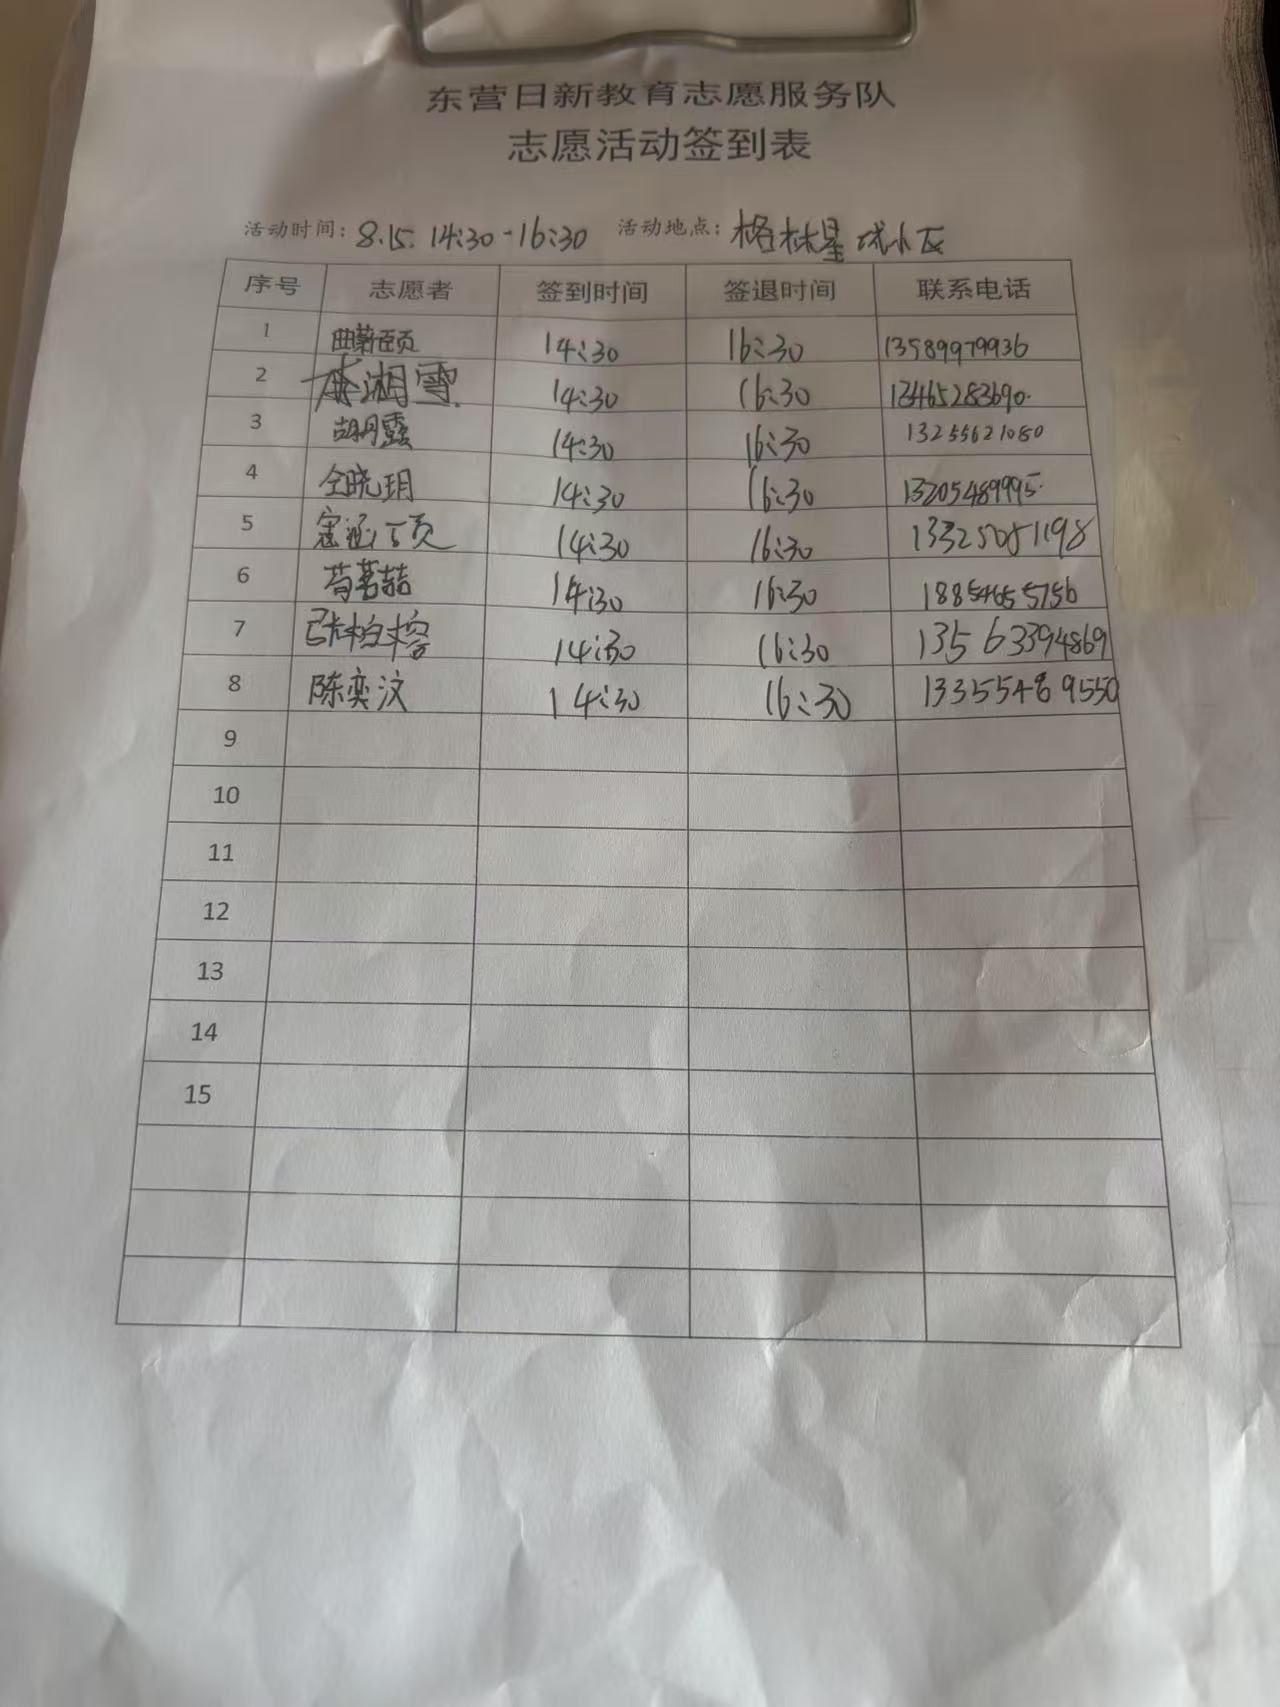 东营日新教育志愿服务队
志愿活动签到表
活动时间：8.15. 14:30-16:30 活动地点：格林星城小区
序号 志愿者 签到时间 签退时间 联系电话
1 曲蔚颐 14:30 16:30 13589979936
2 李湘雪 14:30 16:30 13465283690
3 胡丹露 14:30 16:30 13255621080
4 仝晓玥 14:30 16:30 13205489995
5 14:30 16:30 13325051198
6 14:30 16:30 18854655756
7 14:30 16:30 13563394869
8 陈奕汶 14:30 16:30 13355489550
9
10
11
12
13
14
15